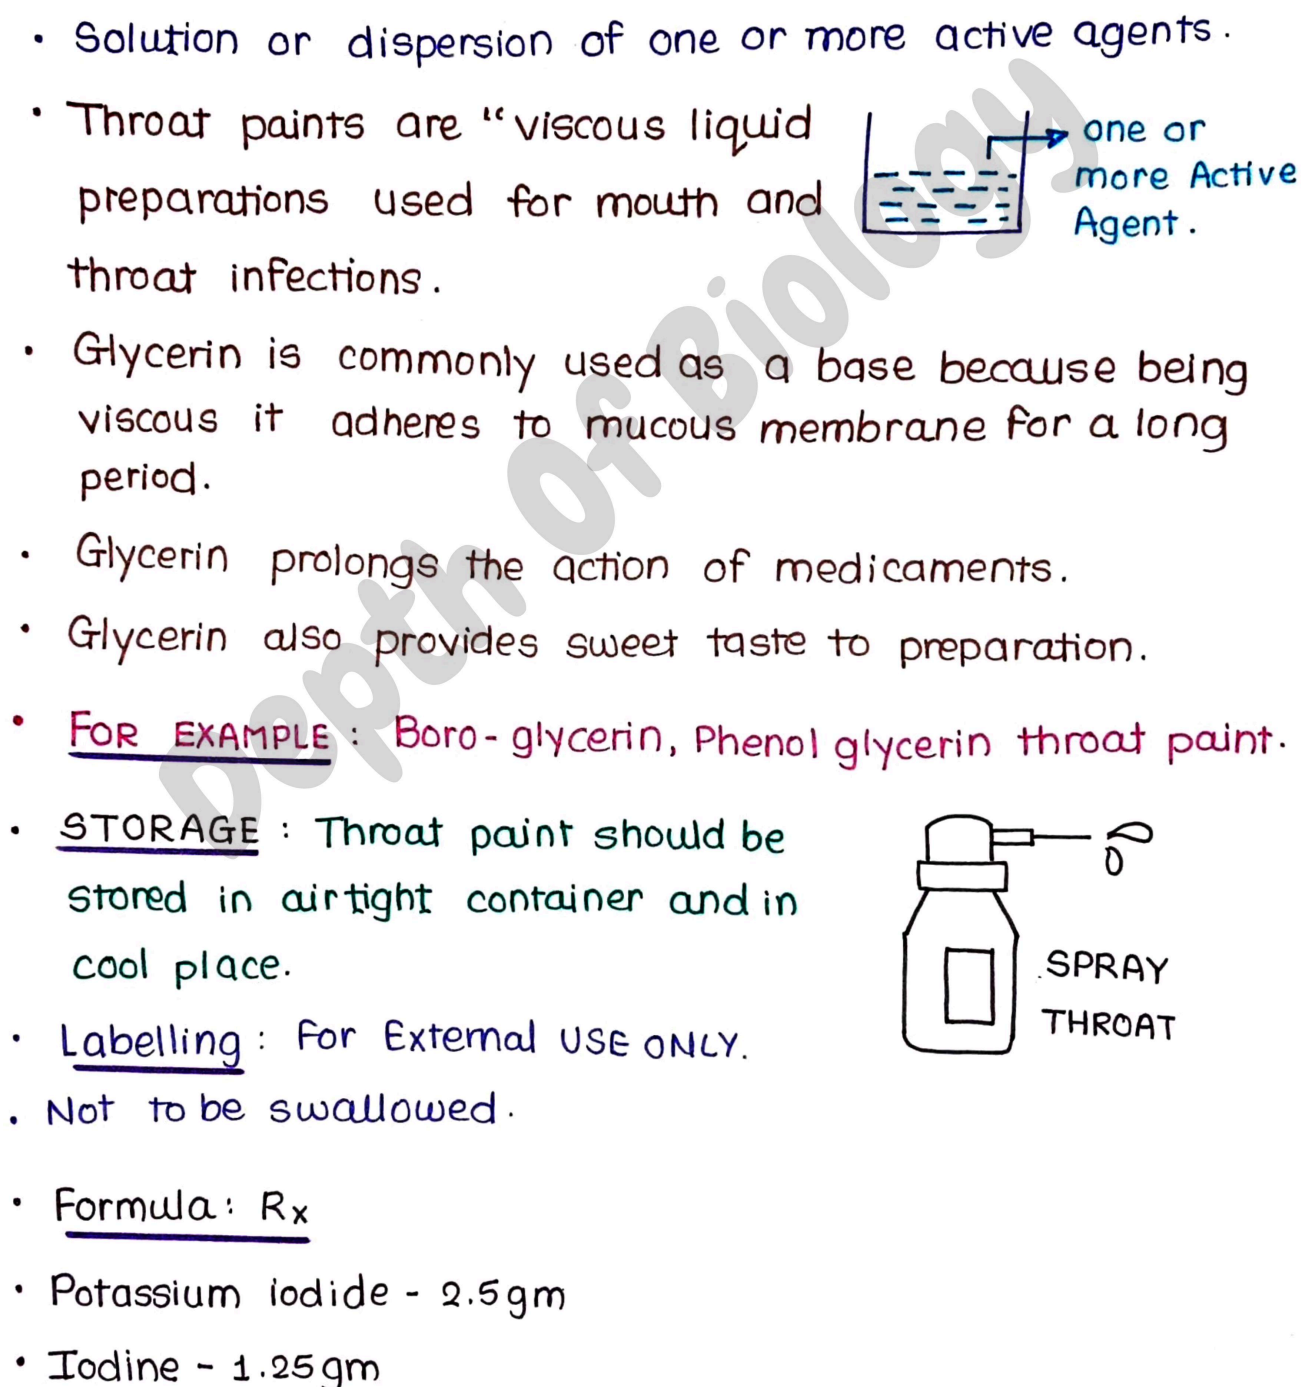 • Solution or dispersion of one or more active agents.
• Throat paints are “viscous liquid
preparations used for mouth and
throat infections.
one or
more Active
Agent.
• Glycerin is commonly used as a base because being
viscous it adheres to mucous membrane for a long
period.
• Glycerin prolongs the action of medicaments.
• Glycerin also provides sweet taste to preparation.
• FOR EXAMPLE: Boro-glycerin, Phenol glycerin throat paint.
• STORAGE: Throat paint should be
stored in airtight container and in
cool place.
SPRAY
THROAT
• Labelling: For External USE ONLY.
. Not to be swallowed.
• Formula: Rx
• Potassium iodide - 2.5gm
• Iodine - 1.25gm
Depth Of Biology